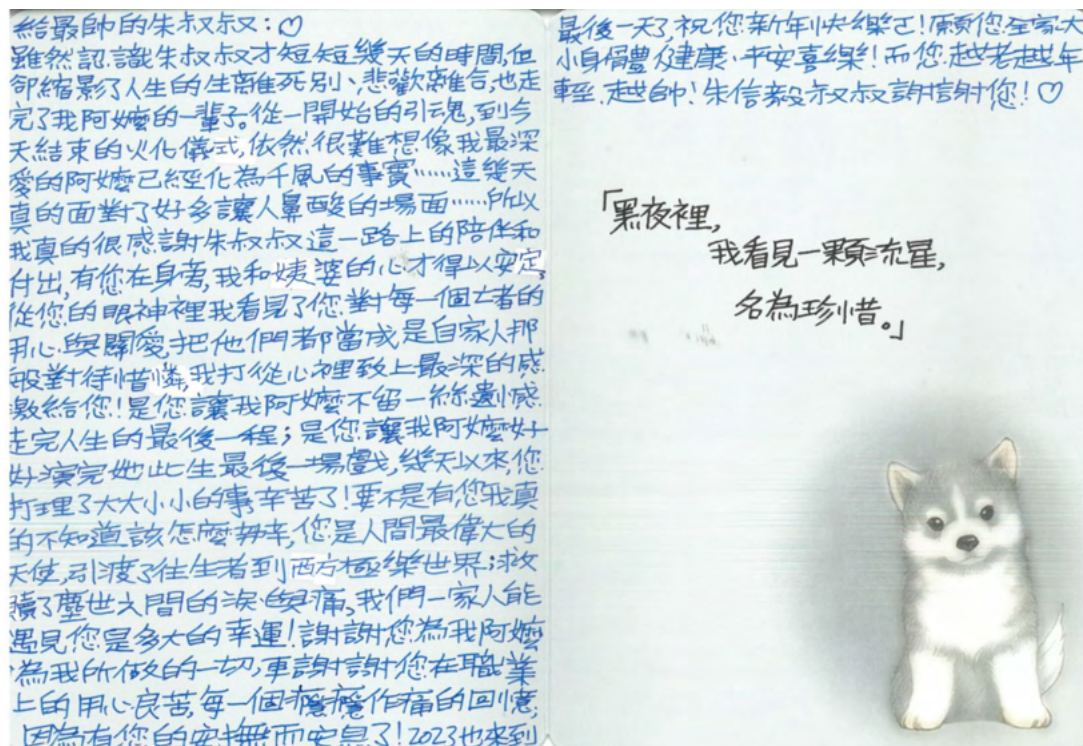 給最帥的朱叔叔：♡
雖然認識朱叔叔才短短幾天的時間，但
卻縮影了人生的生離死別、悲歡離合，也走
完了我阿嬤的一輩子。從一開始的引魂，到今
天結束的火化儀式，依然很難想像我最深
愛的阿嬤已經化為千風的事實……這幾天
真的面對了好多讓人鼻酸的場面……所以
我真的很感謝朱叔叔這一路上的陪伴和
付出，有您在身旁，我和姨婆的心才得以安定，
從您的眼神裡我看見了您對每一個亡者的
用心與關愛，把他們都當成是自家人那
般對待惜憐，我打從心裡致上最深的感
激給您！是您讓我阿嬤不留一絲遺憾
走完人生的最後一程；是您讓我阿嬤好
好演完她此生最後一場戲，幾天以來，您
打理了大大小小的事，辛苦了！要不是有您我真
的不知道該怎麼辦，您是人間最偉大的
天使，引渡了往生者到西方極樂世界；救
贖了塵世之間的淚與痛，我們一家人能
遇見您是多大的幸運！謝謝您為我阿嬤
為我所做的一切，更謝謝您在職業
上的用心良苦，每一個癮癮作痛的回憶，
因為有您的安撫而安息了！2023也來到
最後一天了，祝您新年快樂！願您全家大
小身體健康、平安喜樂！而您越老越年
輕、越帥！朱信毅叔叔謝謝您！♡
「黑夜裡，
我看見一顆流星，
名為珍惜。」